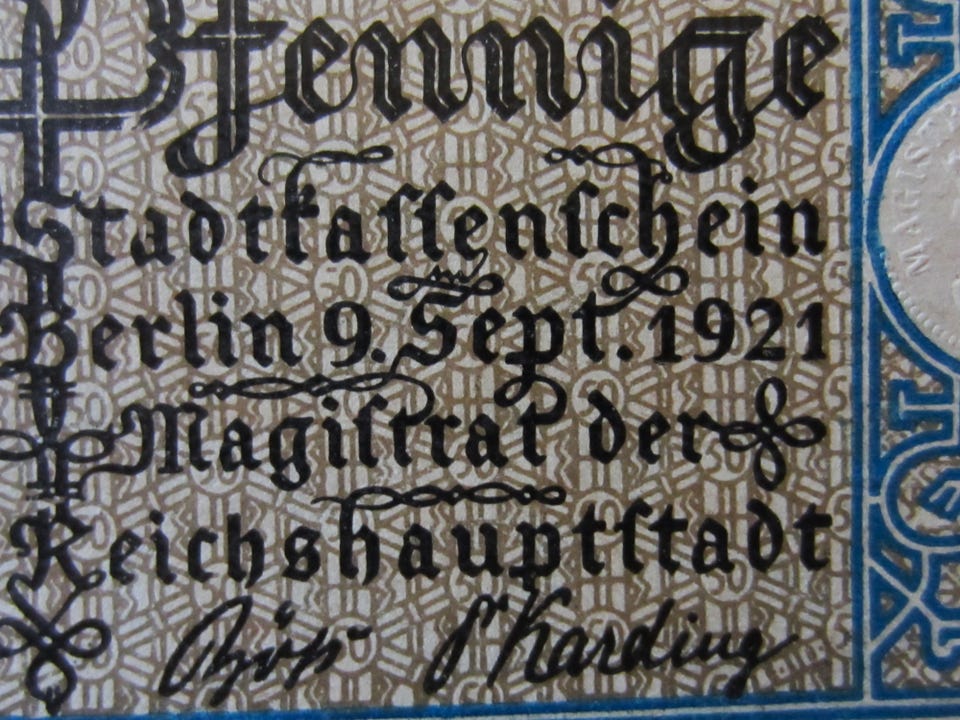 Pfennige
Stadtkaſſenſchein
Berlin 9. Sept. 1921
Magiſtrat der
Reichshauptſtadt
Karding
MAGIS